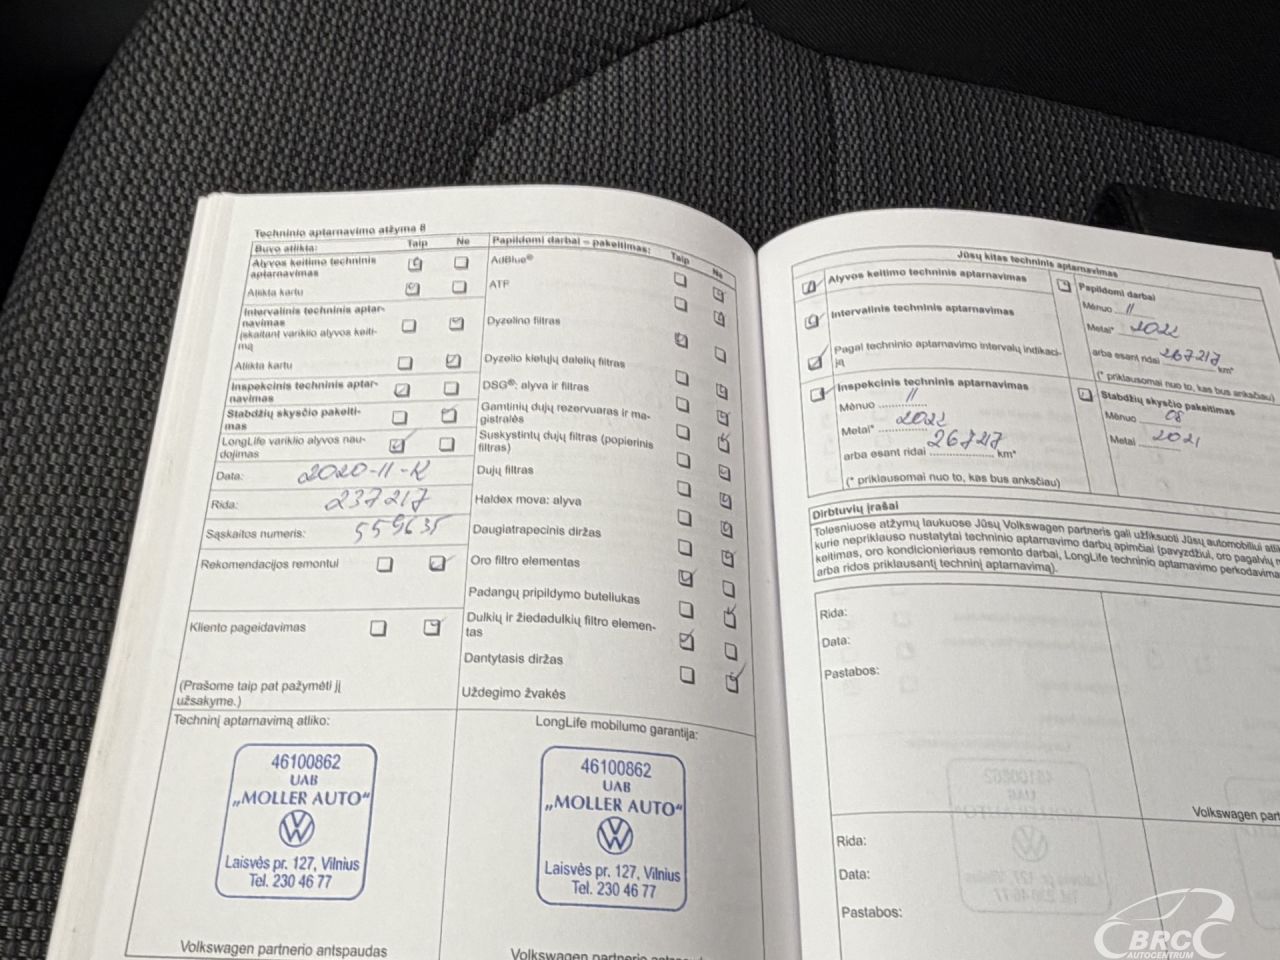 Techninio aptarnavimo atžyma 8
Buvo atlikta: Taip Ne
Alyvos keitimo techninis
aptarnavimas
Atlikta kartu
Intervalinis techninis aptar-
navimas
įskaitant variklio alyvos keiti-
mą
Atlikta kartu
Inspekcinis techninis aptar-
navimas
Stabdžių skysčio pakeiti-
mas
LongLife variklio alyvos nau-
dojimas
Data: 2020-11-12
Rida: 237217
Sąskaitos numeris: 559635
Rekomendacijos remontui
Kliento pageidavimas
(Prašome taip pat pažymėti jį
užsakyme.)
Techninį aptarnavimą atliko:
46100862
UAB
„MOLLER AUTO“
Laisvės pr. 127, Vilnius
Tel. 230 46 77
Volkswagen partnerio antspaudas
Papildomi darbai – pakeitimas: Taip Ne
AdBlue®
ATF
Dyzelino filtras
Dyzelio kietųjų dalelių filtras
DSG®: alyva ir filtras
Gamtinių dujų rezervuaras ir ma-
gistralės
Suskystintų dujų filtras (popierinis
filtras)
Dujų filtras
Haldex mova: alyva
Daugiatrapecinis diržas
Oro filtro elementas
Padangų pripildymo buteliukas
Dulkių ir žiedadulkių filtro elemen-
tas
Dantytasis diržas
Uždegimo žvakės
LongLife mobilumo garantija:
46100862
UAB
„MOLLER AUTO“
Laisvės pr. 127, Vilnius
Tel. 230 46 77
Volkswagen partnerio
Jūsų kitas techninis aptarnavimas
Alyvos keitimo techninis aptarnavimas
Intervalinis techninis aptarnavimas
Pagal techninio aptarnavimo intervalų indikaci-
ją
Inspekcinis techninis aptarnavimas
Mėnuo 11
Metai* 2022
arba esant ridai 267217 km*
(* priklausomai nuo to, kas bus anksčiau)
Papildomi darbai
Mėnuo 11
Metai* 2022
arba esant ridai 267217 km*
(* priklausomai nuo to, kas bus anksčiau)
Stabdžių skysčio pakeitimas
Mėnuo 08
Metai 2021
Dirbtuvių įrašai
Tolesniuose atžymų laukuose Jūsų Volkswagen partneris gali užfiksuoti Jūsų automobiliui
kurie nepriklauso nustatytai techninio aptarnavimo darbų apimčiai (pavyzdžiui, oro pagalvių
keitimas, oro kondicionieriaus remonto darbai, LongLife techninio aptarnavimo perkodavimas
arba ridos priklausantį techninį aptarnavimą).
Rida:
Data:
Pastabos:
Volkswagen
Rida:
Data:
Pastabos:
BRC
AUTOCENTRUM